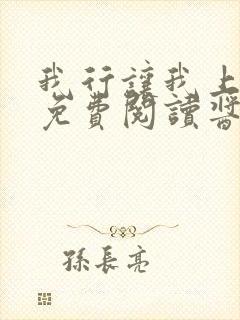 我行讓我上
免費閱讀醬
孫長亮